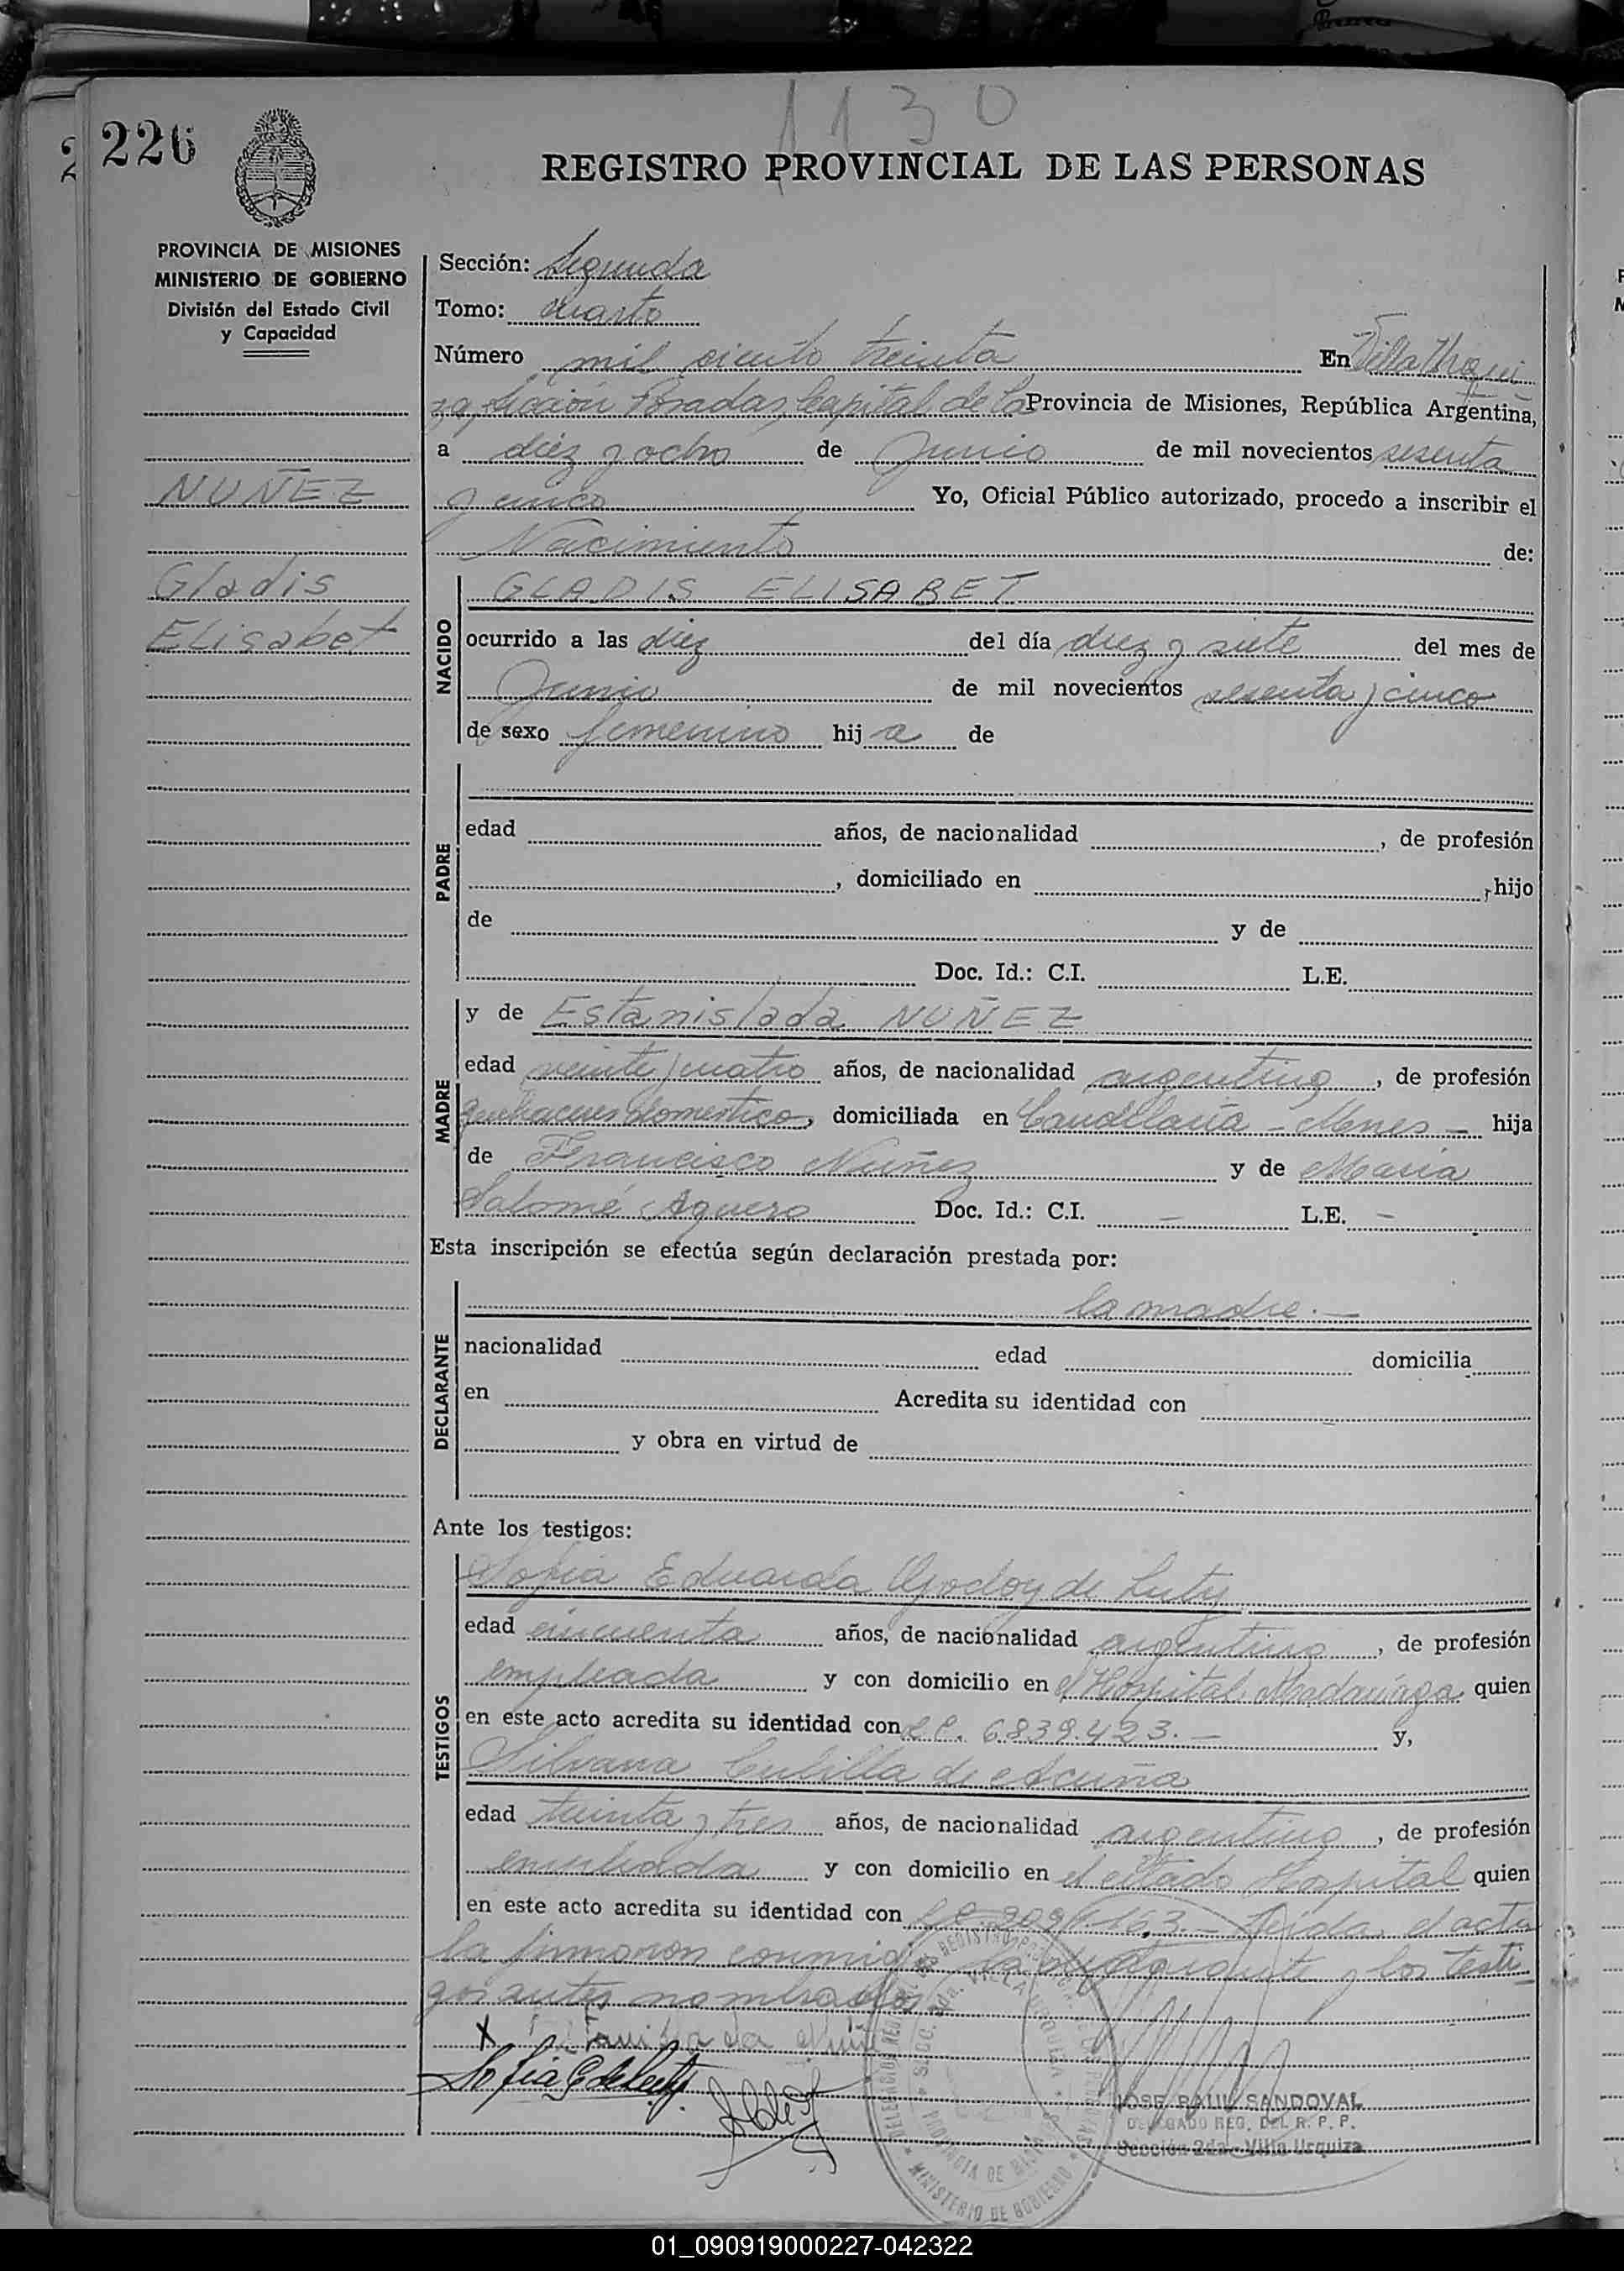 1130
226
REGISTRO PROVINCIAL DE LAS PERSONAS
PROVINCIA DE MISIONES
MINISTERIO DE GOBIERNO
División del Estado Civil
y Capacidad
NUÑEZ
Gladis
Elisabet
Sección: Segunda
Tomo: cuarto
Número mil ciento treinta En Villa Urqui
za, Sección Posadas, Capital de la Provincia de Misiones, República Argentina,
a diez y ocho de Junio de mil novecientos sesenta
y cinco Yo, Oficial Público autorizado, procedo a inscribir el
Nacimiento de:
NACIDO
GLADIS ELISABET
ocurrido a las diez del día diez y siete del mes de
Junio de mil novecientos sesenta y cinco
de sexo femenino hij a de
PADRE
edad años, de nacionalidad , de profesión
, domiciliado en , hijo
de y de
Doc. Id.: C.I. L.E.
MADRE
y de Estanislada NUÑEZ
edad veinte y cuatro años, de nacionalidad argentina, de profesión
quehaceres doméstico, domiciliada en Candelaria - Mnes - hija
de Francisco Nuñez y de Maria
Salomé Aguero Doc. Id.: C.I. - L.E. -
Esta inscripción se efectúa según declaración prestada por:
DECLARANTE
la madre.-
nacionalidad edad domicilia
en Acredita su identidad con
y obra en virtud de
Ante los testigos:
TESTIGOS
Sofia Eduarda Godoy de Luty
edad cincuenta años, de nacionalidad argentina, de profesión
empleada y con domicilio en el Hospital Madariaga quien
en este acto acredita su identidad con L.C. 6.839.423.- y,
Silvana Cubilla de Acuña
edad treinta y tres años, de nacionalidad argentina, de profesión
empleada y con domicilio en el citado Hospital quien
en este acto acredita su identidad con L.C. Leida el acta
la firmaron conmigo la declarante y los testi-
gos antes nombrados
X
Sofia G de Luty
JOSE RAUL SANDOVAL
DELEGADO REG. DEL R. P. P.
Sección 2da - Villa Urquiza
MINISTERIO DE GOBIERNO
01_090919000227-042322